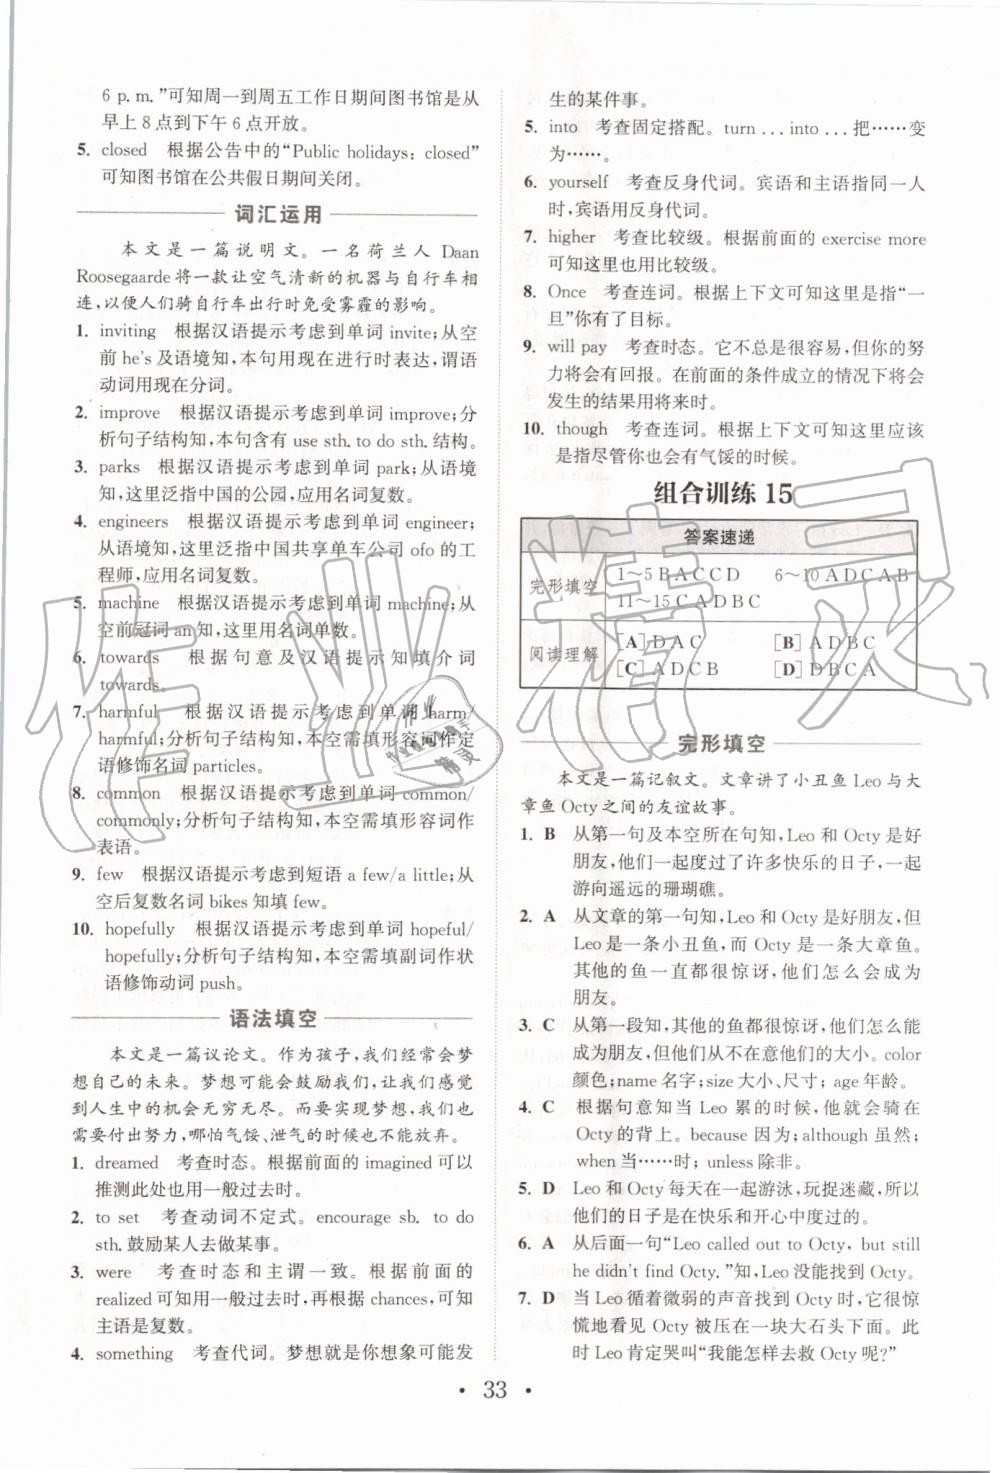 6 p. m.”可知周一到周五工作日期间图书馆是从
早上8点到下午6点开放。
5. closed　根据公告中的“Public holidays: closed”
可知图书馆在公共假日期间关闭。
词汇运用
本文是一篇说明文。一名荷兰人 Daan
Roosegaarde将一款让空气清新的机器与自行车相
连,以便人们骑自行车出行时免受雾霾的影响。
1. inviting　根据汉语提示考虑到单词 invite;从空
前 he's 及语境知,本句用现在进行时表达,谓语
动词用现在分词。
2. improve　根据汉语提示考虑到单词 improve;分
析句子结构知,本句含有 use sth. to do sth. 结构。
3. parks　根据汉语提示考虑到单词 park;从语境
知,这里泛指中国的公园,应用名词复数。
4. engineers　根据汉语提示考虑到单词 engineer;
从语境知,这里泛指中国共享单车公司 ofo 的工
程师,应用名词复数。
5. machine　根据汉语提示考虑到单词 machine;从
空前冠词 an 知,这里用名词单数。
6. towards　根据句意及汉语提示知填介词
towards。
7. harmful　根据汉语提示考虑到单词 harm/
harmful;分析句子结构知,本空需填形容词作定
语修饰名词 particles。
8. common　根据汉语提示考虑到单词 common/
commonly;分析句子结构知,本空需填形容词作
表语。
9. few　根据汉语提示考虑到短语 a few/a little;从
空后复数名词 bikes 知填 few。
10. hopefully　根据汉语提示考虑到单词 hopeful/
hopefully;分析句子结构知,本空需填副词作状
语修饰动词 push。
语法填空
本文是一篇议论文。作为孩子,我们经常会梦
想自己的未来。梦想可能会鼓励我们,让我们感觉
到人生中的机会无穷无尽。而要实现梦想,我们也
需要付出努力,哪怕气馁、泄气的时候也不能放弃。
1. dreamed　考查时态。根据前面的 imagined 可以
推测此处也应用一般过去时。
2. to set　考查动词不定式。encourage sb. to do
sth. 鼓励某人去做某事。
3. were　考查时态和主谓一致。根据前面的
realized 可知用一般过去时,再根据 chances,可知
主语是复数。
4. something　考查代词。梦想就是你想象可能发
生的某件事。
5. into　考查固定搭配。turn ... into ... 把……变
为……。
6. yourself　考查反身代词。宾语和主语指同一人
时,宾语用反身代词。
7. higher　考查比较级。根据前面的 exercise more
可知这里也用比较级。
8. Once　考查连词。根据上下文可知这里是指“一
旦”你有了目标。
9. will pay　考查时态。它不总是很容易,但你的努
力将会有回报。在前面的条件成立的情况下将会
发生的结果用将来时。
10. though　考查连词。根据上下文可知这里应该
是指尽管你也会有气馁的时候。
组合训练 15
答案速递
完形填空　1～5 B A C C D　6～10 A D C A B
11～15 C A D B C
阅读理解　[A] D A C　[B] A D B C
[C] A D C B　[D] D B C A
完形填空
本文是一篇记叙文。文章讲了小丑鱼 Leo 与大
章鱼 Octy 之间的友谊故事。
1. B　从第一句及本空所在句知,Leo 和 Octy 是好
朋友,他们一起度过了许多快乐的日子,一起
游向遥远的珊瑚礁。
2. A　从文章的第一句知,Leo 和 Octy 是好朋友,但
Leo 是一条小丑鱼,而 Octy 是一条大章鱼。
其他的鱼一直都很惊讶,他们怎么会成为
朋友。
3. C　从第一段知,其他的鱼都很惊讶,他们怎么能
成为朋友,但他们从不在意他们的大小。color
颜色;name 名字;size 大小、尺寸;age 年龄。
4. C　根据句意知当 Leo 累的时候,他就会骑在
Octy 的背上。because 因为;although 虽然;
when 当……时;unless 除非。
5. D　Leo 和 Octy 每天在一起游泳,玩捉迷藏,所以
他们的日子是在快乐和开心中度过的。
6. A　从后面一句“Leo called out to Octy, but still
he didn't find Octy.”知,Leo 没能找到 Octy。
7. D　当 Leo 循着微弱的声音找到 Octy 时,它很惊
慌地看见 Octy 被压在一块大石头下面。此
时 Leo 肯定哭叫“我能怎样去救 Octy 呢?”
· 33 ·
作业精灵